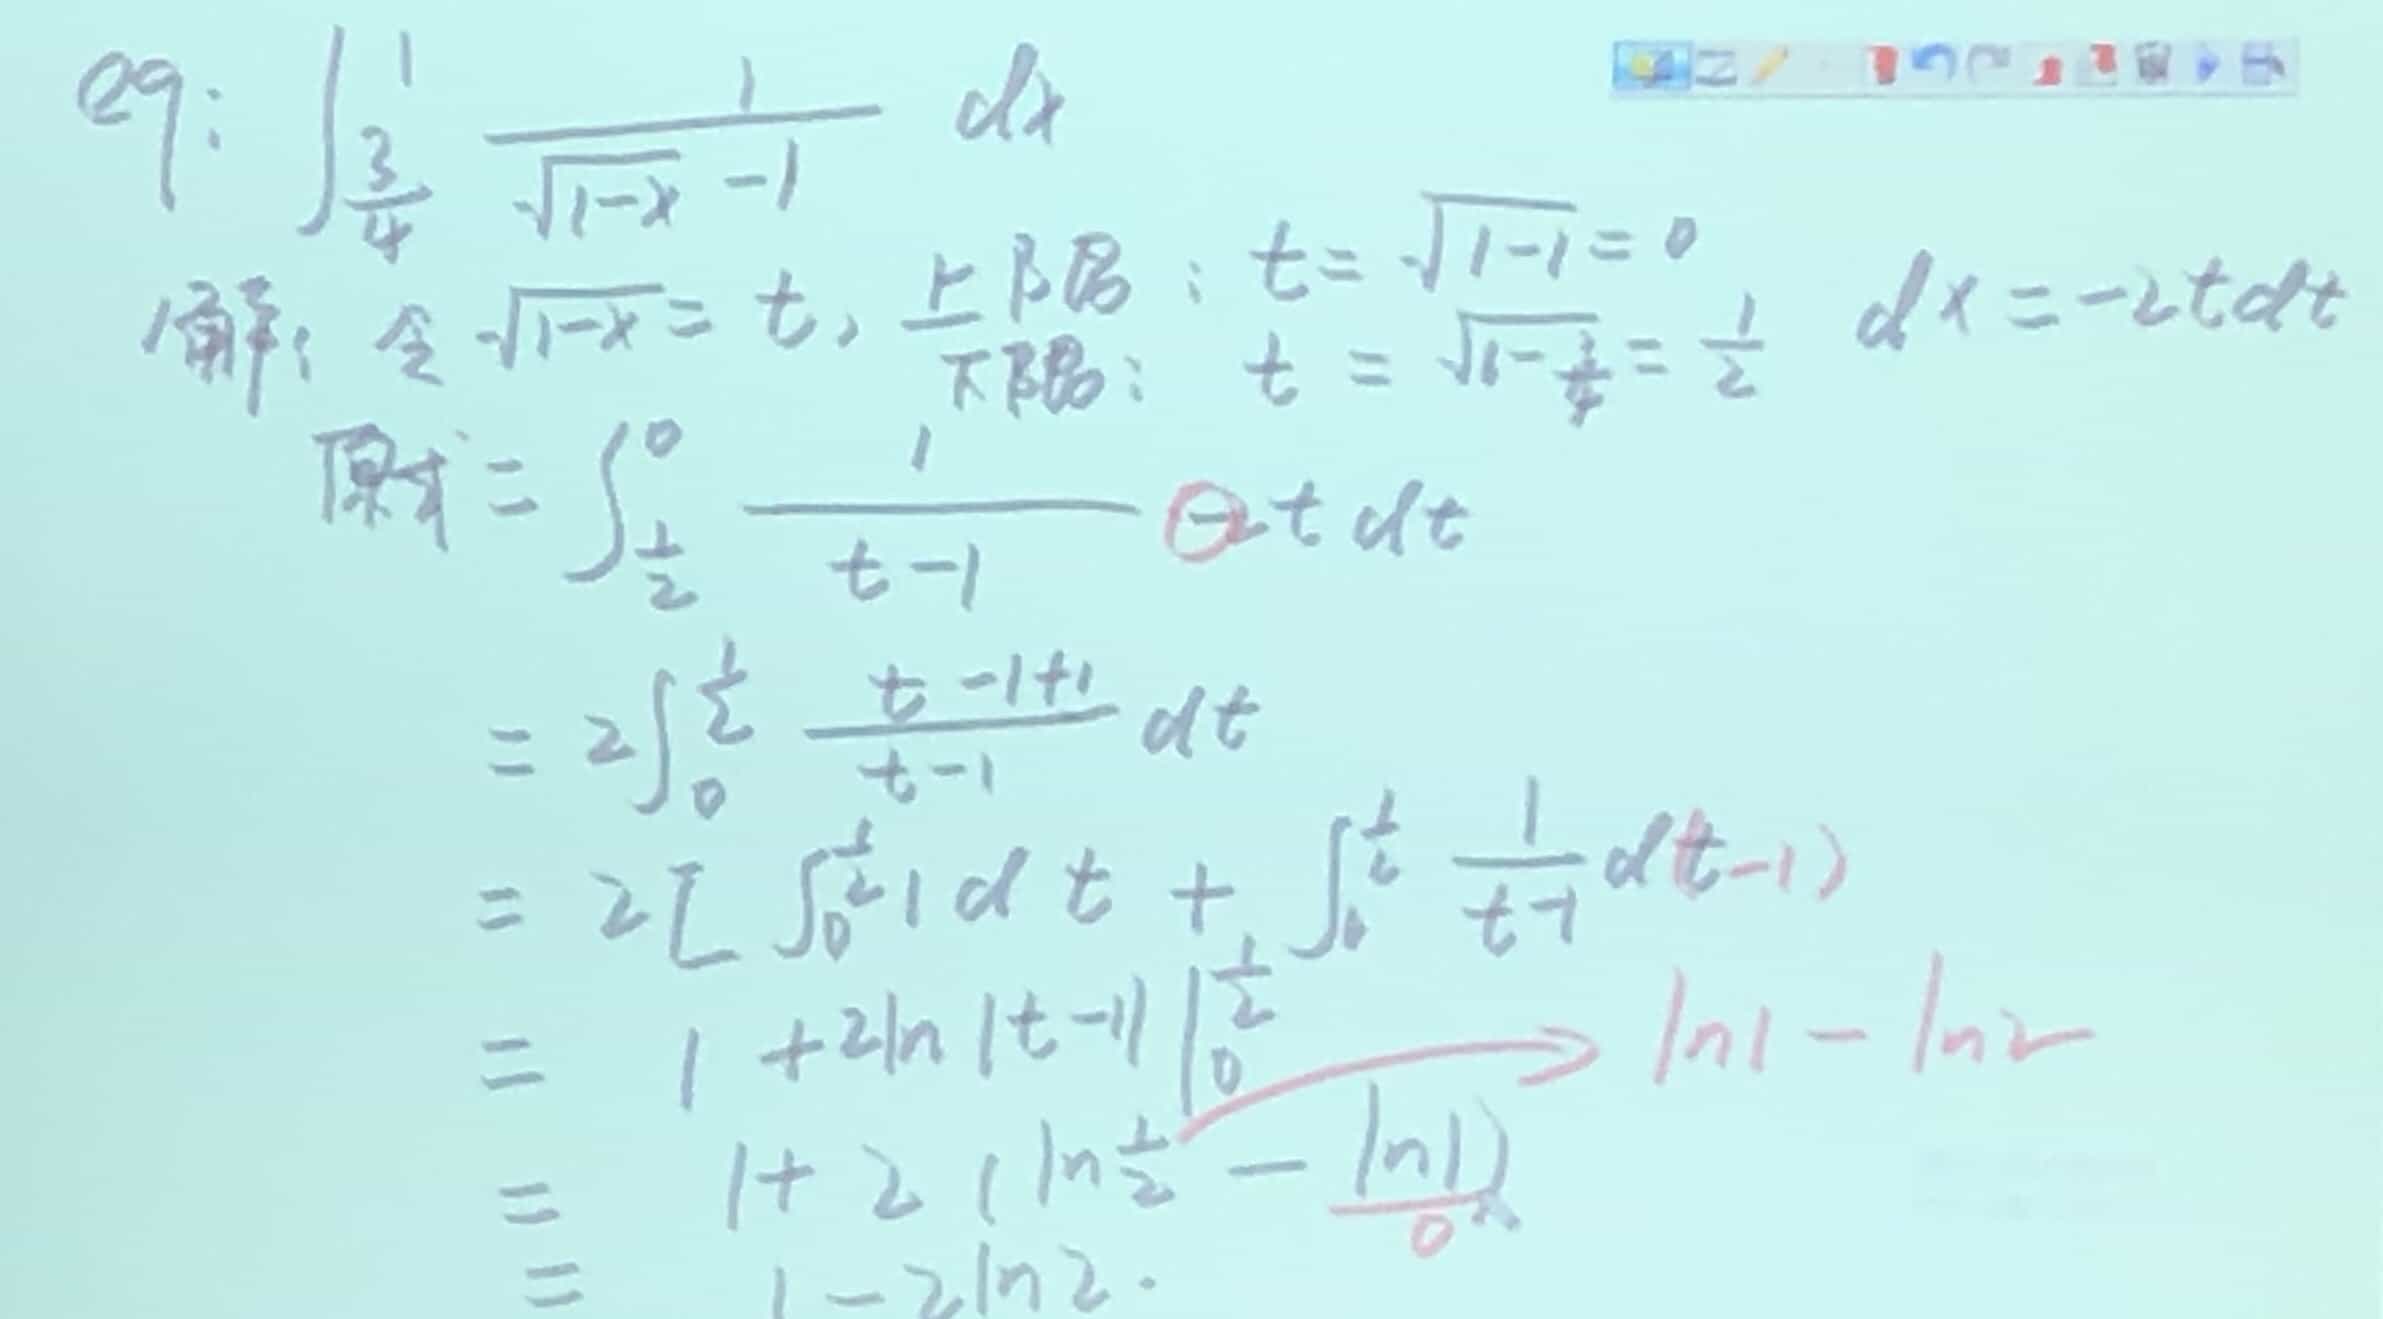 eg: ∫_{3/4}^{1} 1/(√(1-x) -1) dx
解: 令 √(1-x) = t, 上限: t = √(1-1) = 0 dx = -2tdt
下限: t = √(1-3/4) = 1/2
原式 = ∫_{1/2}^{0} 1/(t-1) -2t dt
= 2∫_{0}^{1/2} (t-1+1)/(t-1) dt
= 2[ ∫_{0}^{1/2} 1 d t + ∫_{0}^{1/2} 1/(t-1) d(t-1)
= 1 + 2ln|t-1| |_{0}^{1/2} ln1 - ln2
= 1 + 2 ( ln 1/2 - ln1)
0
= 1 - 2ln2.